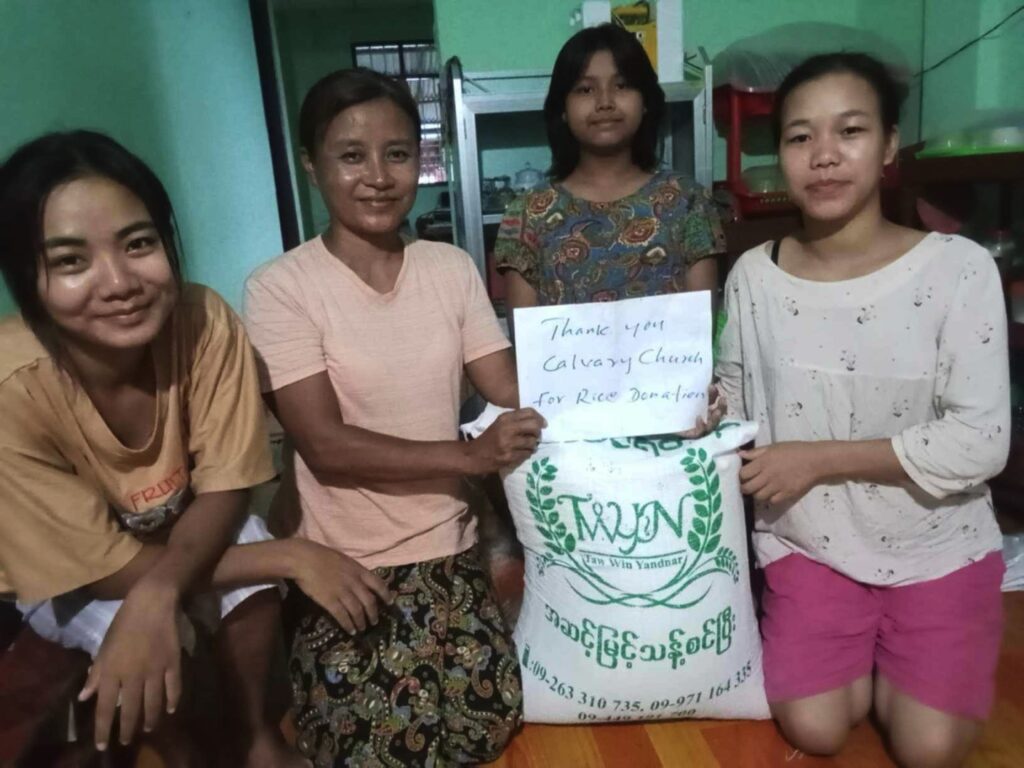 Thank you
Calvary Church
For Rice Donation
TWYN
Taw Win Yandnar
အဆင့်မြင့်သန့်စင်ပြီး
09-263 310 735, 09-971 164 335